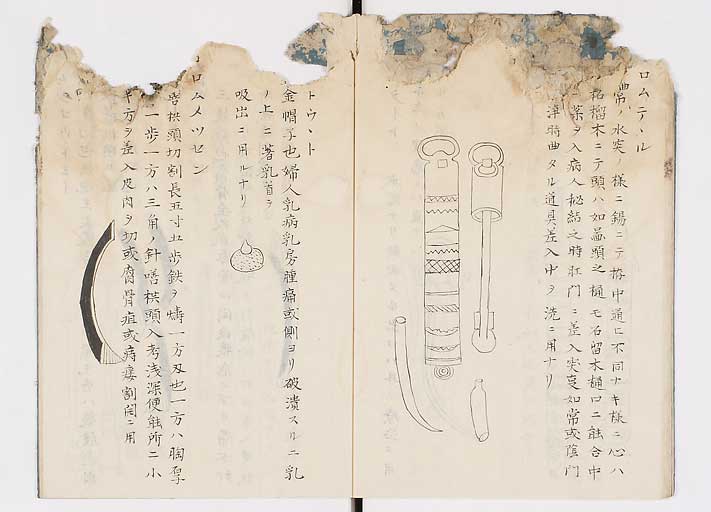 ロムテヽル
常ノ水突ノ様ニ錫ニテ拵中通ニ不同ナキ様ニ心ハ
柘榴木ニテ頭ハ如 頭之樋モ石留木樋口ニ能合中
葉ヲ入病人秘結之時肛門ニ差入突事如常或陰門
淳時曲タル道具差入中ヲ洗ニ用ナリ
トウヽト
金帽子也婦人乳病乳房腫痛或側ヨリ破潰スルニ乳
ノ上ニ着乳首ヲ
吸出ニ用ルナリ
ロムメツセン
 拱頭切割長五寸五歩鉄ヲ 一方刄也一方ハ胸厚
一歩一方ハ三角ノ針 拱頭入考浅深便能所ニ小
キ方ヲ差入皮肉ヲ切或腐骨疽或痔瘻割開ニ用